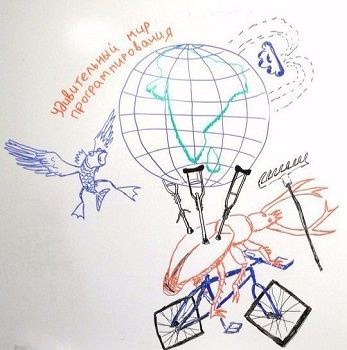 Удивительный мир
программирования